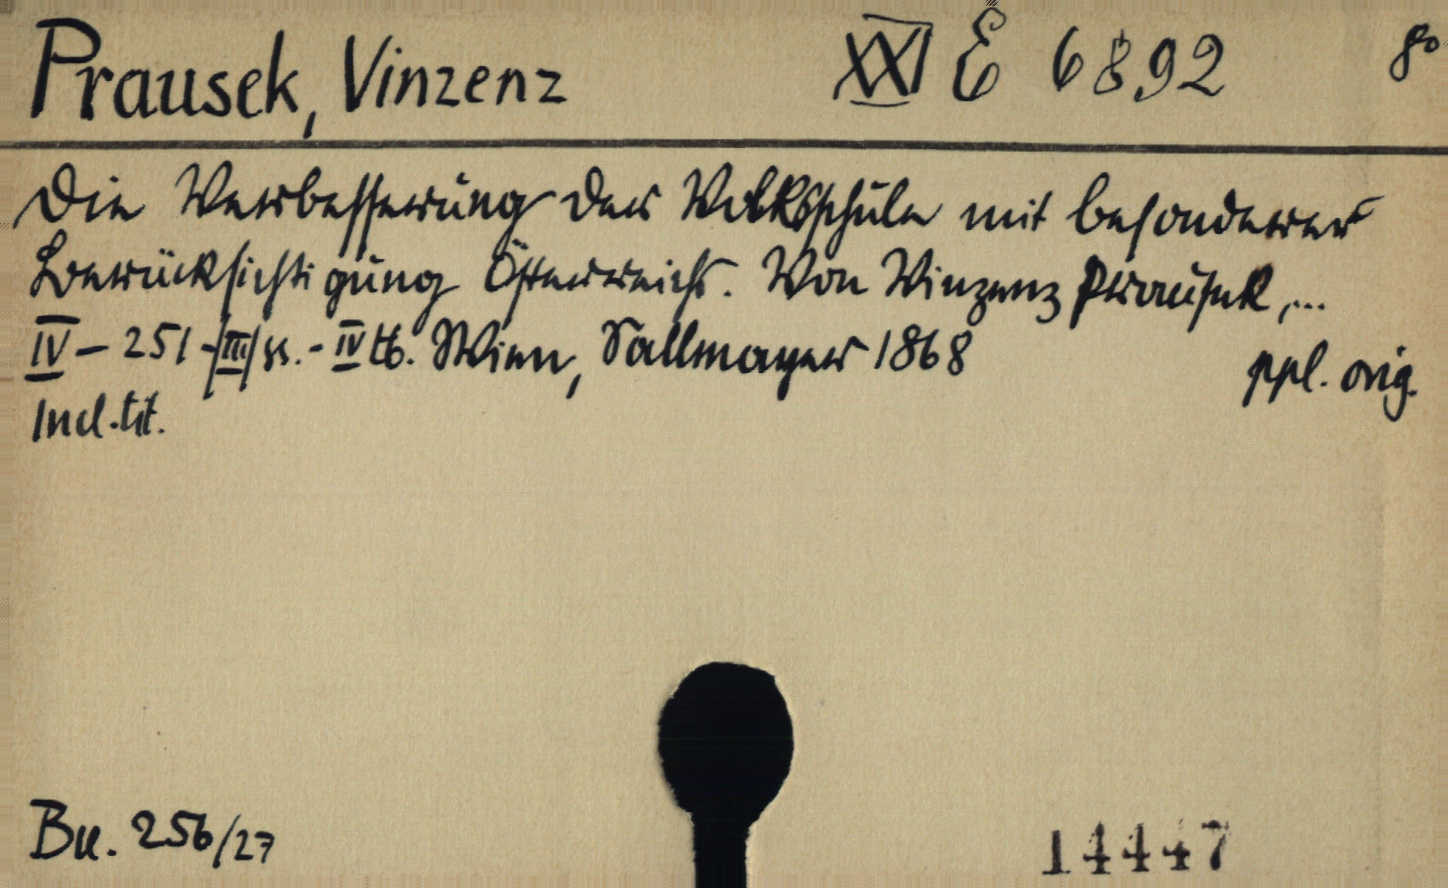 Prausek, Vinzenz XXI E 6892 8°
Die Verbesserung der Volksschule mit besonderer
Berücksichtigung Österreichs. Von Vinzenz Prausek,...
IV – 251 - |III| ss. - IV tb. Wien, Sallmayer 1868
ppl. orig.
Incl. tit.
Bu. 256/27
14447